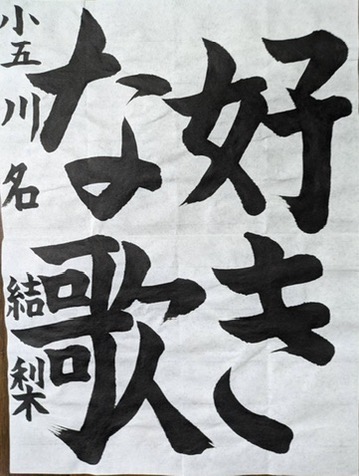 好き
な歌
小五 川名 結梨